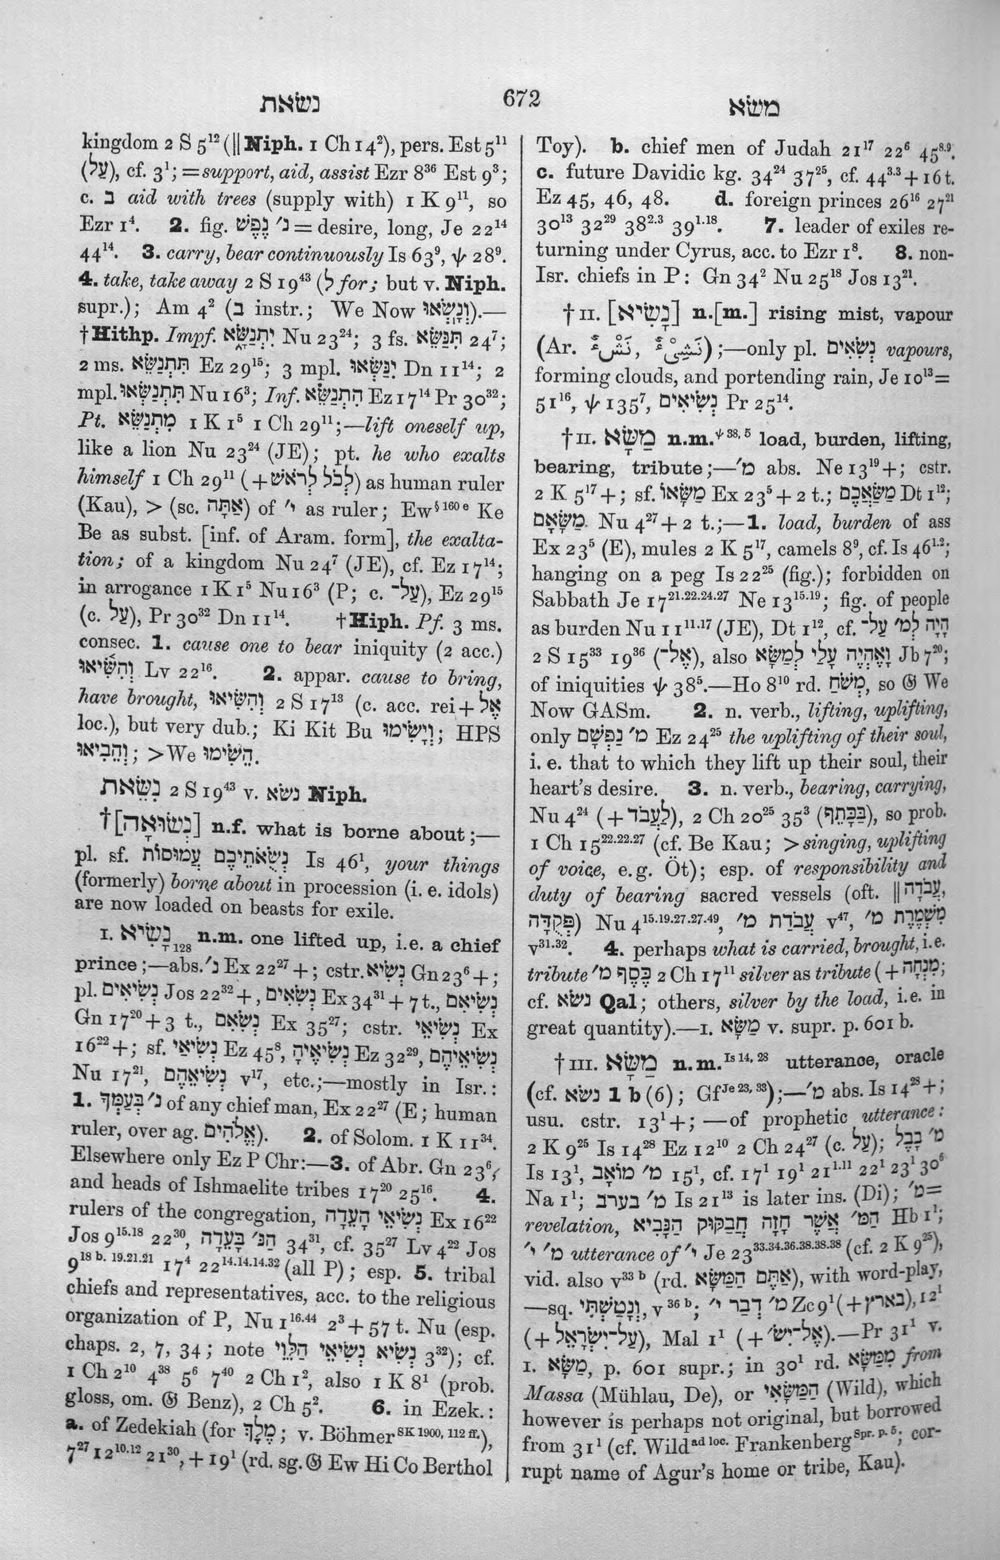 נשׂאת
672
משׂא
kingdom 2 S 5¹² (‖ Niph. 1 Ch 14²), pers. Est 5¹¹
(עַל), cf. 3¹; = support, aid, assist Ezr 8³⁶ Est 9³;
c. בּ aid with trees (supply with) 1 K 9¹¹, so
Ezr 1⁴. 2. fig. נ׳ נֶפֶשׁ = desire, long, Je 22¹⁴
44¹⁴. 3. carry, bear continuously Is 63⁹, ψ 28⁹.
4. take, take away 2 S 19⁴³ (לְ for; but v. Niph.
supr.); Am 4² (בּ instr.; We Now וְנָשְׂאוּ).—
†Hithp. Impf. יִתְנַשֵּׂא Nu 23²⁴; 3 fs. תִּנַּשֵּׂא 24⁷;
2 ms. תִּתְנַשֵּׂא Ez 29¹⁵; 3 mpl. יִנַּשְּׂאוּ Dn 11¹⁴; 2
mpl. תִּתְנַשְּׂאוּ Nu 16³; Inf. הִתְנַשֵּׂא Ez 17¹⁴ Pr 30³²;
Pt. מִתְנַשֵּׂא 1 K 1⁵ 1 Ch 29¹¹;—lift oneself up,
like a lion Nu 23²⁴ (JE); pt. he who exalts
himself 1 Ch 29¹¹ (+ לְכֹל לְרֹאשׁ) as human ruler
(Kau), > (sc. אַתָּה) of י׳ as ruler; Ew§ ¹⁶⁰ ᵉ Ke
Be as subst. [inf. of Aram. form], the exalta-
tion; of a kingdom Nu 24⁷ (JE), cf. Ez 17¹⁴;
in arrogance 1 K 1⁵ Nu 16³ (P; c. עַל־), Ez 29¹⁵
(c. עַל), Pr 30³² Dn 11¹⁴. †Hiph. Pf. 3 ms.
consec. 1. cause one to bear iniquity (2 acc.)
וְהִשִּׂיאוּ Lv 22¹⁶. 2. appar. cause to bring,
have brought, וְהִשִּׂיאוּ 2 S 17¹³ (c. acc. rei + אֶל
loc.), but very dub.; Ki Kit Bu וְיָשִׂימוּ; HPS
וְהֵבִיאוּ; > We הֵשִׂימוּ.
נִשֵּׂאת 2 S 19⁴³ v. נשׂא Niph.
†[נְשׂוּאָה] n.f. what is borne about;—
pl. sf. נְשֻׂאֹתֵיכֶם עֲמוּסוֹת Is 46¹, your things
(formerly) borne about in procession (i. e. idols)
are now loaded on beasts for exile.
I. נָשִׂיא₁₂₈ n.m. one lifted up, i.e. a chief
prince;—abs. נ׳ Ex 22²⁷ +; cstr. נְשִׂיא Gn 23⁶ +;
pl. נְשִׂיאִים Jos 22³² +, נְשִׂאִים Ex 34³¹ + 7 t., נְשִׂיאִם
Gn 17²⁰ + 3 t., נְשִׂאִם Ex 35²⁷; cstr. נְשִׂיאֵי Ex
16²² +; sf. נְשִׂיאַי Ez 45⁸, נְשִׂיאֶיהָ Ez 32²⁹, נְשִׂיאֵיהֶם
Nu 17²¹, נְשִׂיאֵהֶם v¹⁷, etc.;—mostly in Isr.:
1. נ׳ בְּעַמְּךָ of any chief man, Ex 22²⁷ (E; human
ruler, over ag. אֱלֹהִים). 2. of Solom. 1 K 11³⁴.
Elsewhere only Ez P Chr:—3. of Abr. Gn 23⁶,
and heads of Ishmaelite tribes 17²⁰ 25¹⁶. 4.
rulers of the congregation, נְשִׂיאֵי הָעֵדָה Ex 16²²
Jos 9¹⁵·¹⁸ 22³⁰, הַנּ׳ בָּעֵדָה 34³¹, cf. 35²⁷ Lv 4²² Jos
9¹⁸ ᵇ· ¹⁹·²¹·²¹ 17⁴ 22¹⁴·¹⁴·¹⁴·³² (all P); esp. 5. tribal
chiefs and representatives, acc. to the religious
organization of P, Nu 1¹⁶·⁴⁴ 2³ + 57 t. Nu (esp.
chaps. 2, 7, 34; note נְשִׂיא נְשִׂיאֵי הַלֵּוִי 3³²); cf.
1 Ch 2¹⁰ 4³⁸ 5⁶ 7⁴⁰ 2 Ch 1², also 1 K 8¹ (prob.
gloss, om. 𝔊 Benz), 2 Ch 5². 6. in Ezek.:
a. of Zedekiah (for מֶלֶךְ; v. Böhmer SK 1900, 112 ff.),
7²⁷ 12¹⁰·¹² 21³⁰, + 19¹ (rd. sg. 𝔊 Ew Hi Co Berthol
Toy). b. chief men of Judah 21¹⁷ 22⁶ 45⁸·⁹.
c. future Davidic kg. 34²⁴ 37²⁵, cf. 44³·³ + 16 t.
Ez 45, 46, 48. d. foreign princes 26¹⁶ 27²¹
30¹³ 32²⁹ 38²·³ 39¹·¹⁸. 7. leader of exiles re-
turning under Cyrus, acc. to Ezr 1⁸. 8. non-
Isr. chiefs in P: Gn 34² Nu 25¹⁸ Jos 13²¹.
†II. [נָשִׂיא] n.[m.] rising mist, vapour
(Ar. نَشْءٌ, نَشِىْءٌ);—only pl. נְשִׂאִים vapours,
forming clouds, and portending rain, Je 10¹³ =
51¹⁶, ψ 135⁷, נְשִׂיאִים Pr 25¹⁴.
†II. מַשָּׂא n.m. ψ 38, 5 load, burden, lifting,
bearing, tribute;—מ׳ abs. Ne 13¹⁹ +; cstr.
2 K 5¹⁷ +; sf. מַשָּׂאוֹ Ex 23⁵ + 2 t.; מַשַּׂאֲכֶם Dt 1¹²;
מַשָּׂאָם Nu 4²⁷ + 2 t.;—1. load, burden of ass
Ex 23⁵ (E), mules 2 K 5¹⁷, camels 8⁹, cf. Is 46¹·²;
hanging on a peg Is 22²⁵ (fig.); forbidden on
Sabbath Je 17²¹·²²·²⁴·²⁷ Ne 13¹⁵·¹⁹; fig. of people
as burden Nu 11¹¹·¹⁷ (JE), Dt 1¹², cf. הָיָה לְמ׳ עַל־
2 S 15³³ 19³⁶ (אֶל־), also וָאֶהְיֶה עָלַי לְמַשָּׂא Jb 7²⁰;
of iniquities ψ 38⁵.—Ho 8¹⁰ rd. מְשֹׁחַ, so 𝔊 We
Now GASm. 2. n. verb., lifting, uplifting,
only מ׳ נַפְשָׁם Ez 24²⁵ the uplifting of their soul,
i. e. that to which they lift up their soul, their
heart's desire. 3. n. verb., bearing, carrying,
Nu 4²⁴ (+ לַעֲבֹד), 2 Ch 20²⁵ 35³ (בַּכָּתֵף), so prob.
1 Ch 15²²·²²·²⁷ (cf. Be Kau; > singing, uplifting
of voice, e.g. Öt); esp. of responsibility and
duty of bearing sacred vessels (oft. ‖ עֲבֹדָה,
פְּקֻדָּה) Nu 4¹⁵·¹⁹·²⁷·²⁷·⁴⁹, עֲבֹדַת מ׳ v⁴⁷, מִשְׁמֶרֶת מ׳
v³¹·³². 4. perhaps what is carried, brought, i.e.
tribute כֶּסֶף מ׳ 2 Ch 17¹¹ silver as tribute (+ מִנְחָה;
cf. נשׂא Qal; others, silver by the load, i.e. in
great quantity).—I. מַשָּׂא v. supr. p. 601 b.
†III. מַשָּׂא n.m. Is 14, 28 utterance, oracle
(cf. נשׂא 1 b (6); Gf Je 23, 33);—מ׳ abs. Is 14²⁸ +;
usu. cstr. 13¹ +;—of prophetic utterance:
2 K 9²⁵ Is 14²⁸ Ez 12¹⁰ 2 Ch 24²⁷ (c. עַל); מ׳ בָּבֶל
Is 13¹, מ׳ מוֹאָב 15¹, cf. 17¹ 19¹ 21¹·¹¹ 22¹ 23¹ 30⁶
Na 1¹; מ׳ בערב Is 21¹³ is later ins. (Di); מ׳ =
revelation, הַמּ׳ אֲשֶׁר חָזָה חֲבַקּוּק הַנָּבִיא Hb 1¹;
מ׳ י׳ utterance of י׳ Je 23³³·³⁴·³⁶·³⁸·³⁸·³⁸ (cf. 2 K 9²⁵),
vid. also v³³ ᵇ (rd. אַתֶּם הַמַּשָּׂא), with word-play,
—sq. וְנָטַשְׁתִּי, v³⁶ ᵇ; מ׳ דְבַר י׳ Zc 9¹ (+ בארץ), 12¹
(+ עַל־יִשְׂרָאֵל), Mal 1¹ (+ אֶל־יִשׂ׳).—Pr 31¹ v.
I. מַשָּׂא, p. 601 supr.; in 30¹ rd. מִמַּשָּׂא from
Massa (Mühlau, De), or הַמַּשָּׂאִי (Wild), which
however is perhaps not original, but borrowed
from 31¹ (cf. Wild ad loc. Frankenberg Spr. p. 5; cor-
rupt name of Agur's home or tribe, Kau).